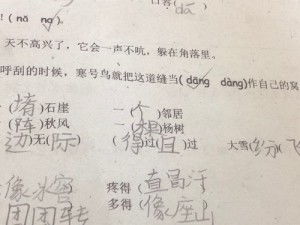 ! (nǎ nɡ)。
天不高兴了，它会一声不吭，躲在角落里。
呼刮的时候，寒号鸟就把这道缝当(dānɡ dànɡ)作自己的窝
(堵)石崖 一(个)邻居
(阵)秋风 一( )杨树
(边)无(际) (得)过(且)过 大雪( )(飞
像冰窖 疼得(直冒汗
团团转 多得(像座山